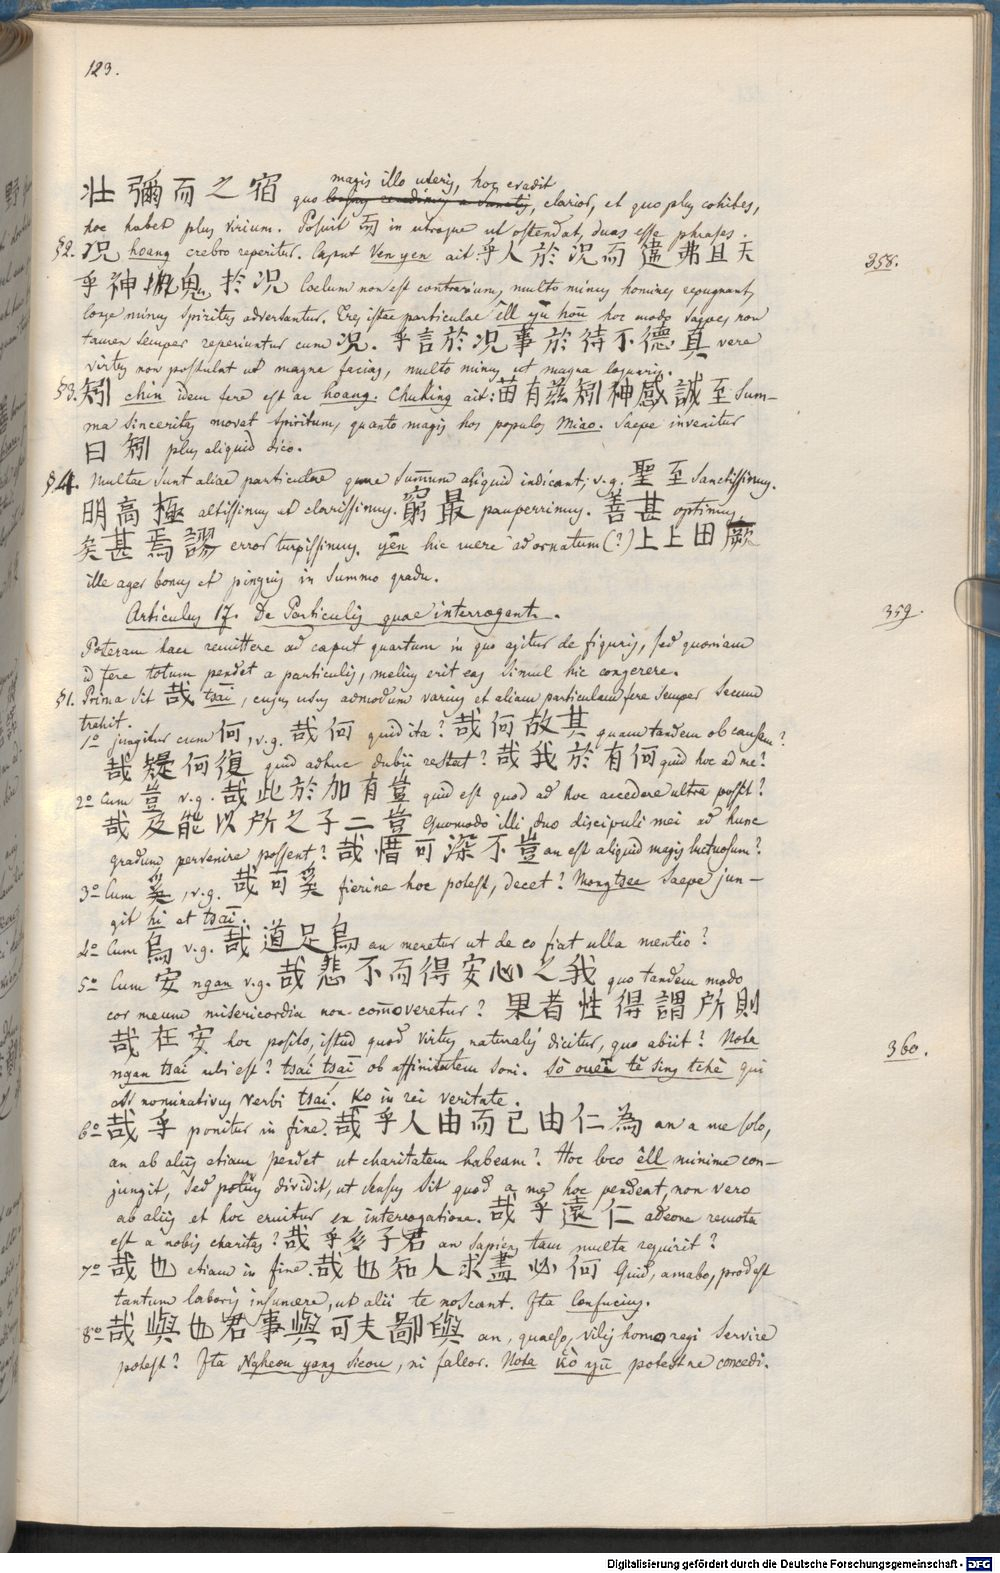 123.
壮彌而之宿 quo magis illo uteris, hoc evadit clarior, et quo plus cohibes,
hoc habet plus virium. Posuit 而 in utroque ut ostendat, duas esse phrases.
§2. 况 hoang crebro reperitur. Caput Ven yen ait: 乎人於况而違弗且天
358.
乎神鬼於况 Coelum non est contrarium, multo minus homines repugnant,
longe minus spiritus adversantur. Tres istae particulae ell yu hou hoc modo saepe, non
tamen semper reperiuntur cum 况. 乎言於况事於待不德真 vera
virtus non postulat ut magna facias, multo minus ut magna loquaris.
§3. 矧 chin idem fere est ac hoang. Chu King ait: 苗有兹矧神感誠至 Sum-
ma Sinceritas movet spiritum, quanto magis hos populos Miao. Saepe invenitur
曰矧 plus aliquid dico.
§4. Multae sunt aliae particulae quae summum aliquid indicant, v.g. 聖至 Sanctissimus.
明高極 altissimus et clarissimus. 窮最 pauperrimus. 善甚 optimus,
矣甚焉謬 error turpissimus. yen hic mere ad ornatum (?) 上上田厥
ille ager bonus et pinguis in summo gradu.
Articulus 17. De Particulis quae interrogant.
359.
Poteram haec remittere ad caput quartum in quo agitur de figuris, sed quoniam
id fere totum pendet a particulis, melius erit eas simul hic congerere.
§1. Prima sit 哉 tsai, cujus usus admodum varius et aliam particulam fere semper secum
trahit.
1o jungitur cum 何, v.g. 哉何 quid ita? 哉何故其 quam tandem ob causam?
哉疑何復 quid adhuc dubii restat? 哉我於有何 quid hoc ad me?
2o Cum 豈 v.g. 哉此於加有豈 quid est quod ad hoc accedere ultra possit?
哉及能以所之子二豈 Quomodo illi duo discipuli mei ad hunc
gradum pervenire possent? 哉惜可深不豈 an est aliquid magis luctuosum?
3o Cum 奚, v.g. 哉可奚 fierine hoc potest, decet? Mongtsee saepe jun-
git hi et tsai.
4o Cum 烏 v.g. 哉道足烏 an meretur ut de eo fiat ulla mentio?
5o Cum 安 ngan v.g. 哉悲不而得安心之我 quo tandem modo
cor meum misericordia non commoveretur? 果者性得謂所則
哉在安 hoc posito, istud quod virtus naturalis dicitur, quo abiit? Nota
360.
ngan tsai ubi est? tsai tsai ob affinitatem soni. So ouei te sing tche qui
est nominativus verbi tsai. Ko in rei veritate.
6o 哉乎 ponitur in fine. 哉乎人由而已由仁為 an a me solo,
an ab aliis etiam pendet ut charitatem habeam? Hoc loco ell minime con-
jungit, sed potius dividit, ut sensus sit quod a me hoc pendeat, non vero
ab aliis et hoc eruitur ex interrogatione. 哉乎遠仁 adeone remota
est a nobis charitas? 哉乎多子君 an sapiens tam multa requirit?
7o 哉也 etiam in fine. 哉也知人求盡必何 Quid, amabo, prodest
tantum laboris insumere, ut alii te noscant. Ita Confucius.
8o 哉與也君事與可夫鄙與 an, quaeso, vilis homo regi servire
potest? Ita Ngheou yang sieou, ni fallor. Nota Ko yu potestne concedi.
Digitalisierung gefördert durch die Deutsche Forschungsgemeinschaft - DFG